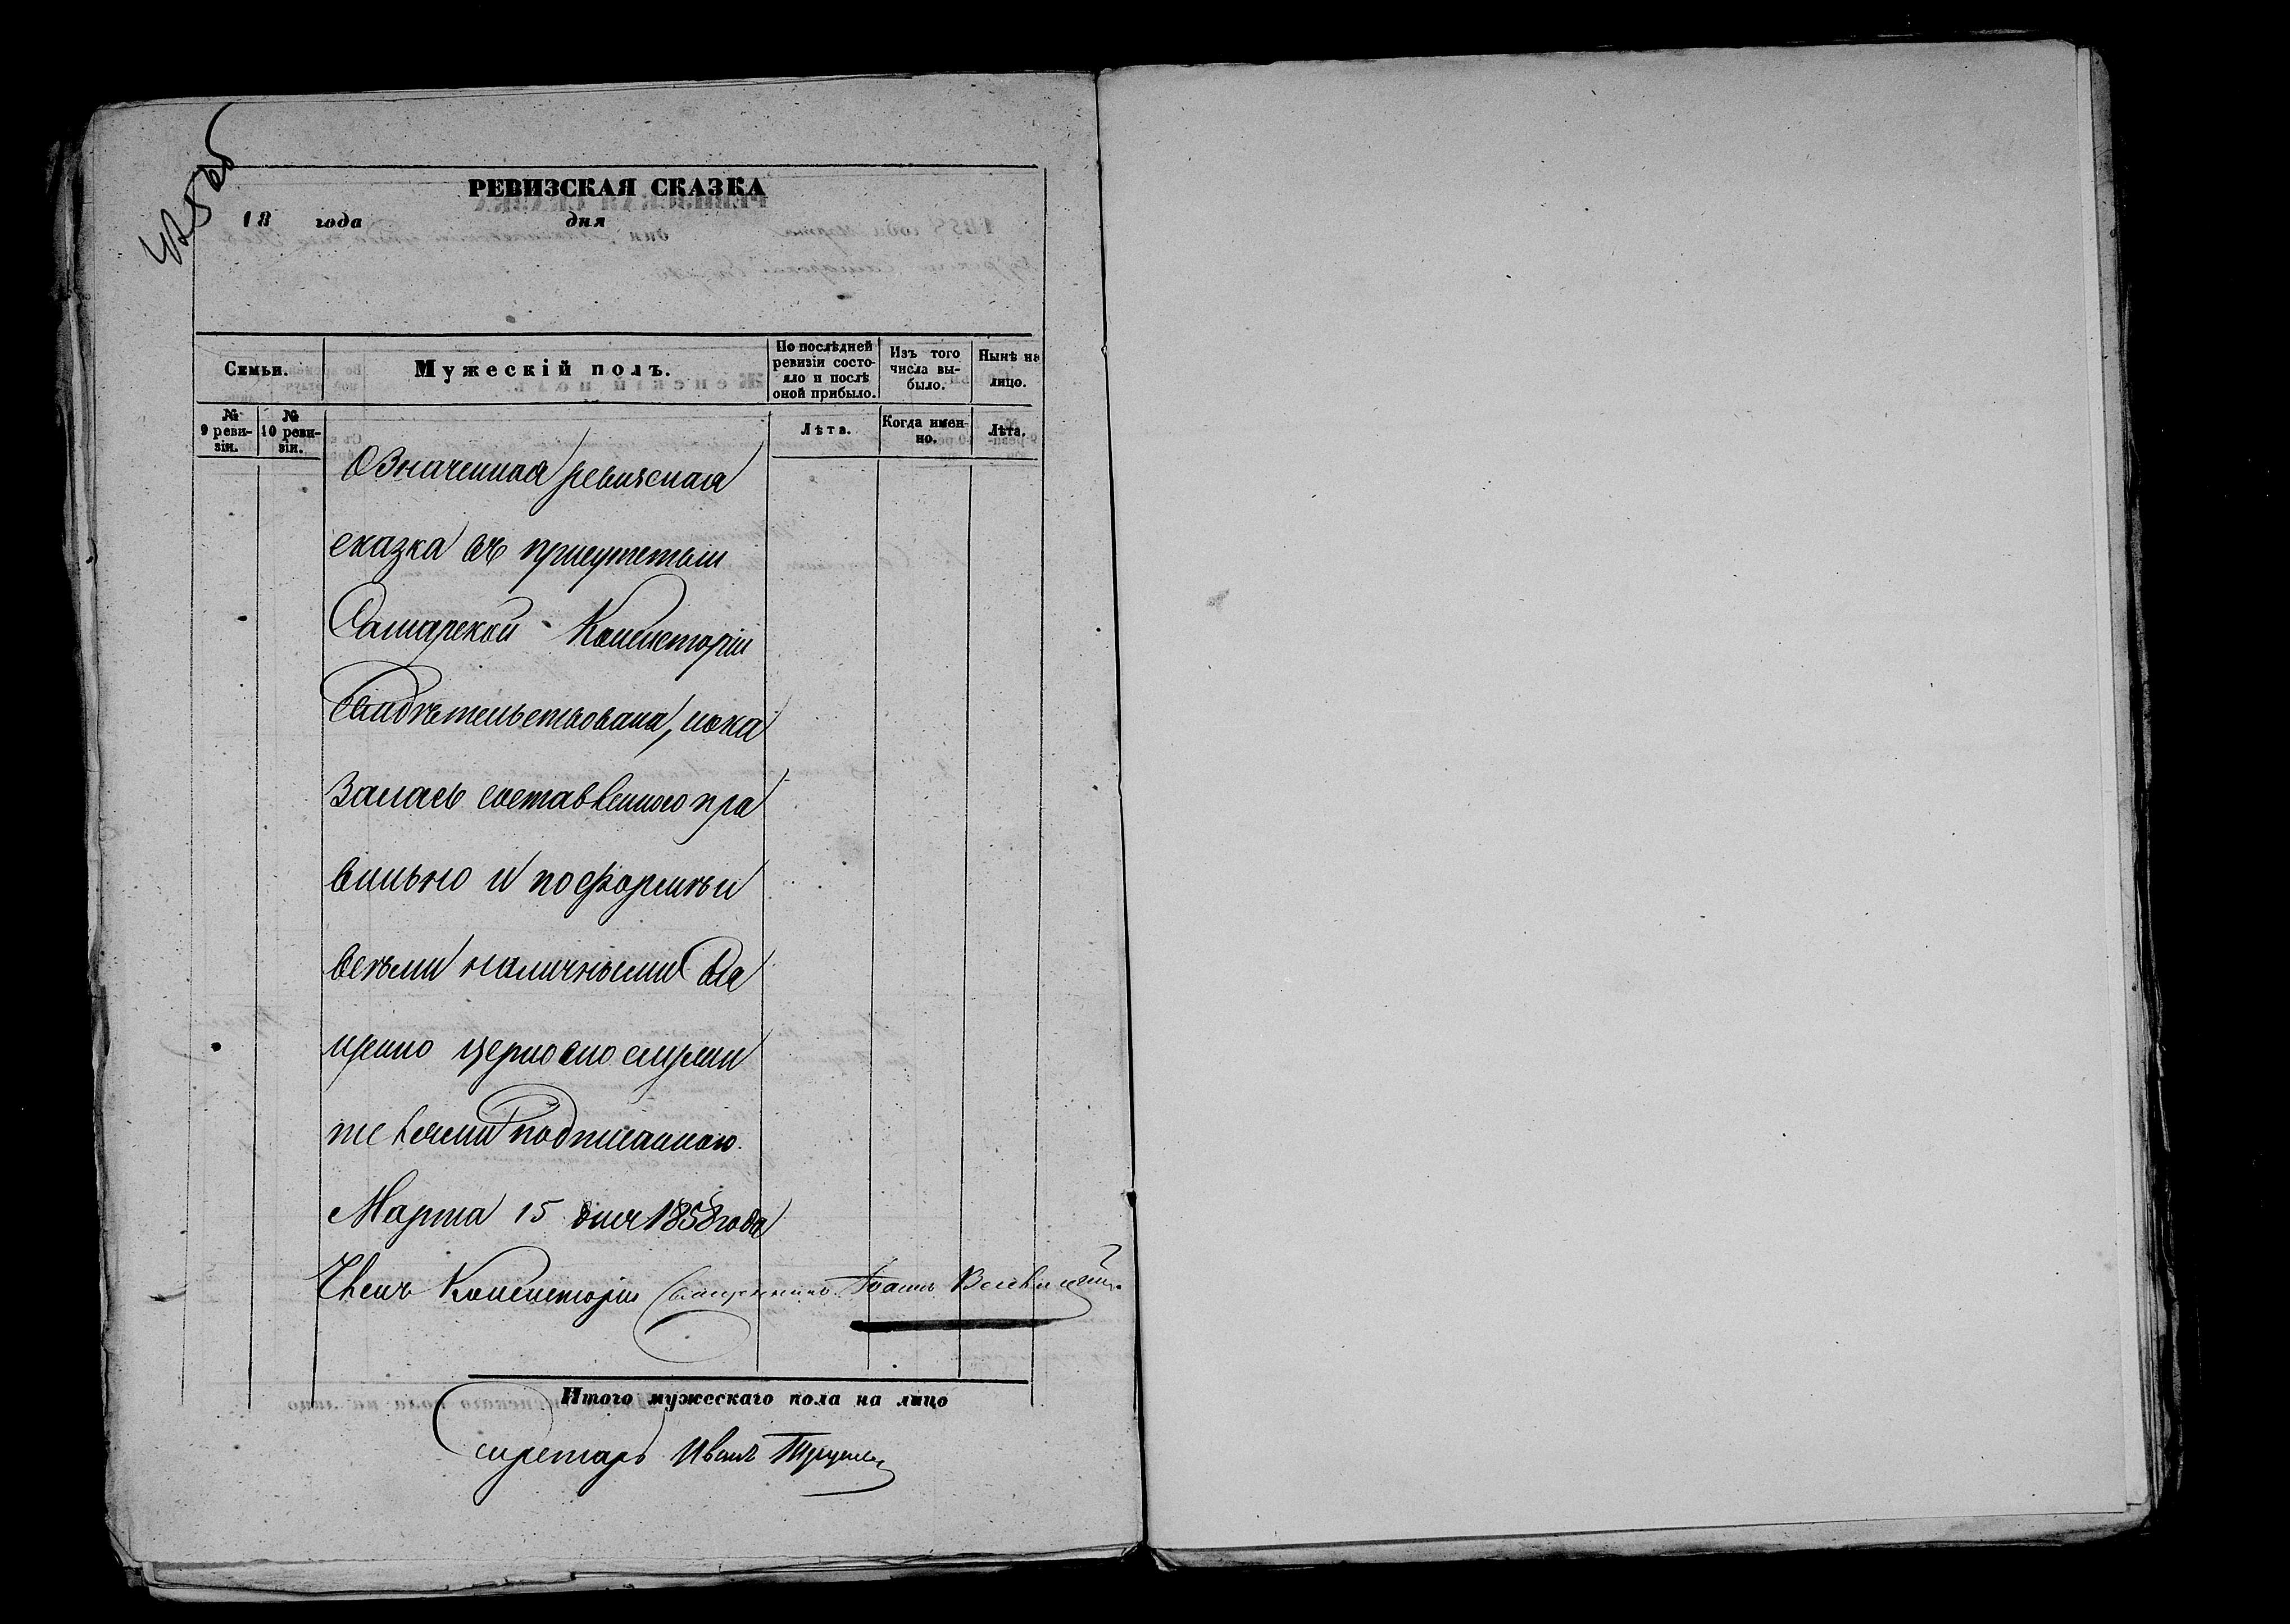 РЕВИЗСКАЯ СКАЗКА
18 года дня
Семьи.
Мужескій полъ.
По послѣдней ревизіи состояло и послѣ оной прибыло.
Изъ того числа выбыло.
Нынѣ на лицо.
№ 9 ревизіи.
№ 10 ревизіи.
Лѣта.
Когда именно.
Лѣта.
Означенная ревизская
сказка въ присутствіи
Самарской Консисторіи
Свидѣтельствована, пока
залась составленною пра
вильно и по формѣ и
всѣми наличными Свя
щенно церковно служи
телями подписанною.
Марта 15 дня 1858 года
Членъ Консисторіи Священникъ Іоаннъ
Итого мужескаго пола на лицо
Секретарь Иванъ